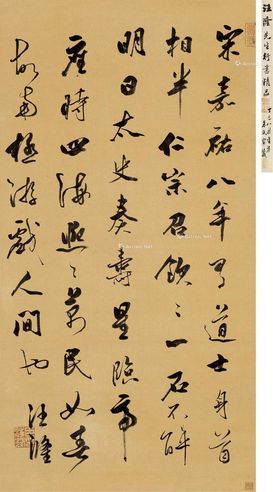 宋嘉祐八年有道士身首
相半仁宗召飲之一石不醉
明日太史奏壽星臨帝
座時四海熙之萬民如春
故南極游戲人間也
汪隆
汪隆先生行書精品